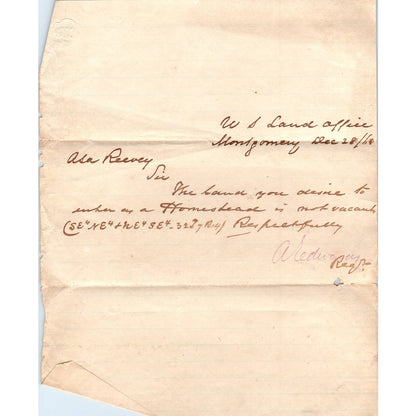 U S Land office
Montgomery Dec 28/68
Asa Reevey
Sir
The land you desire to
enter as a Homestead is not vacant
(SE4 NE4 & NE4 SE4 32
Respectfully
Regr